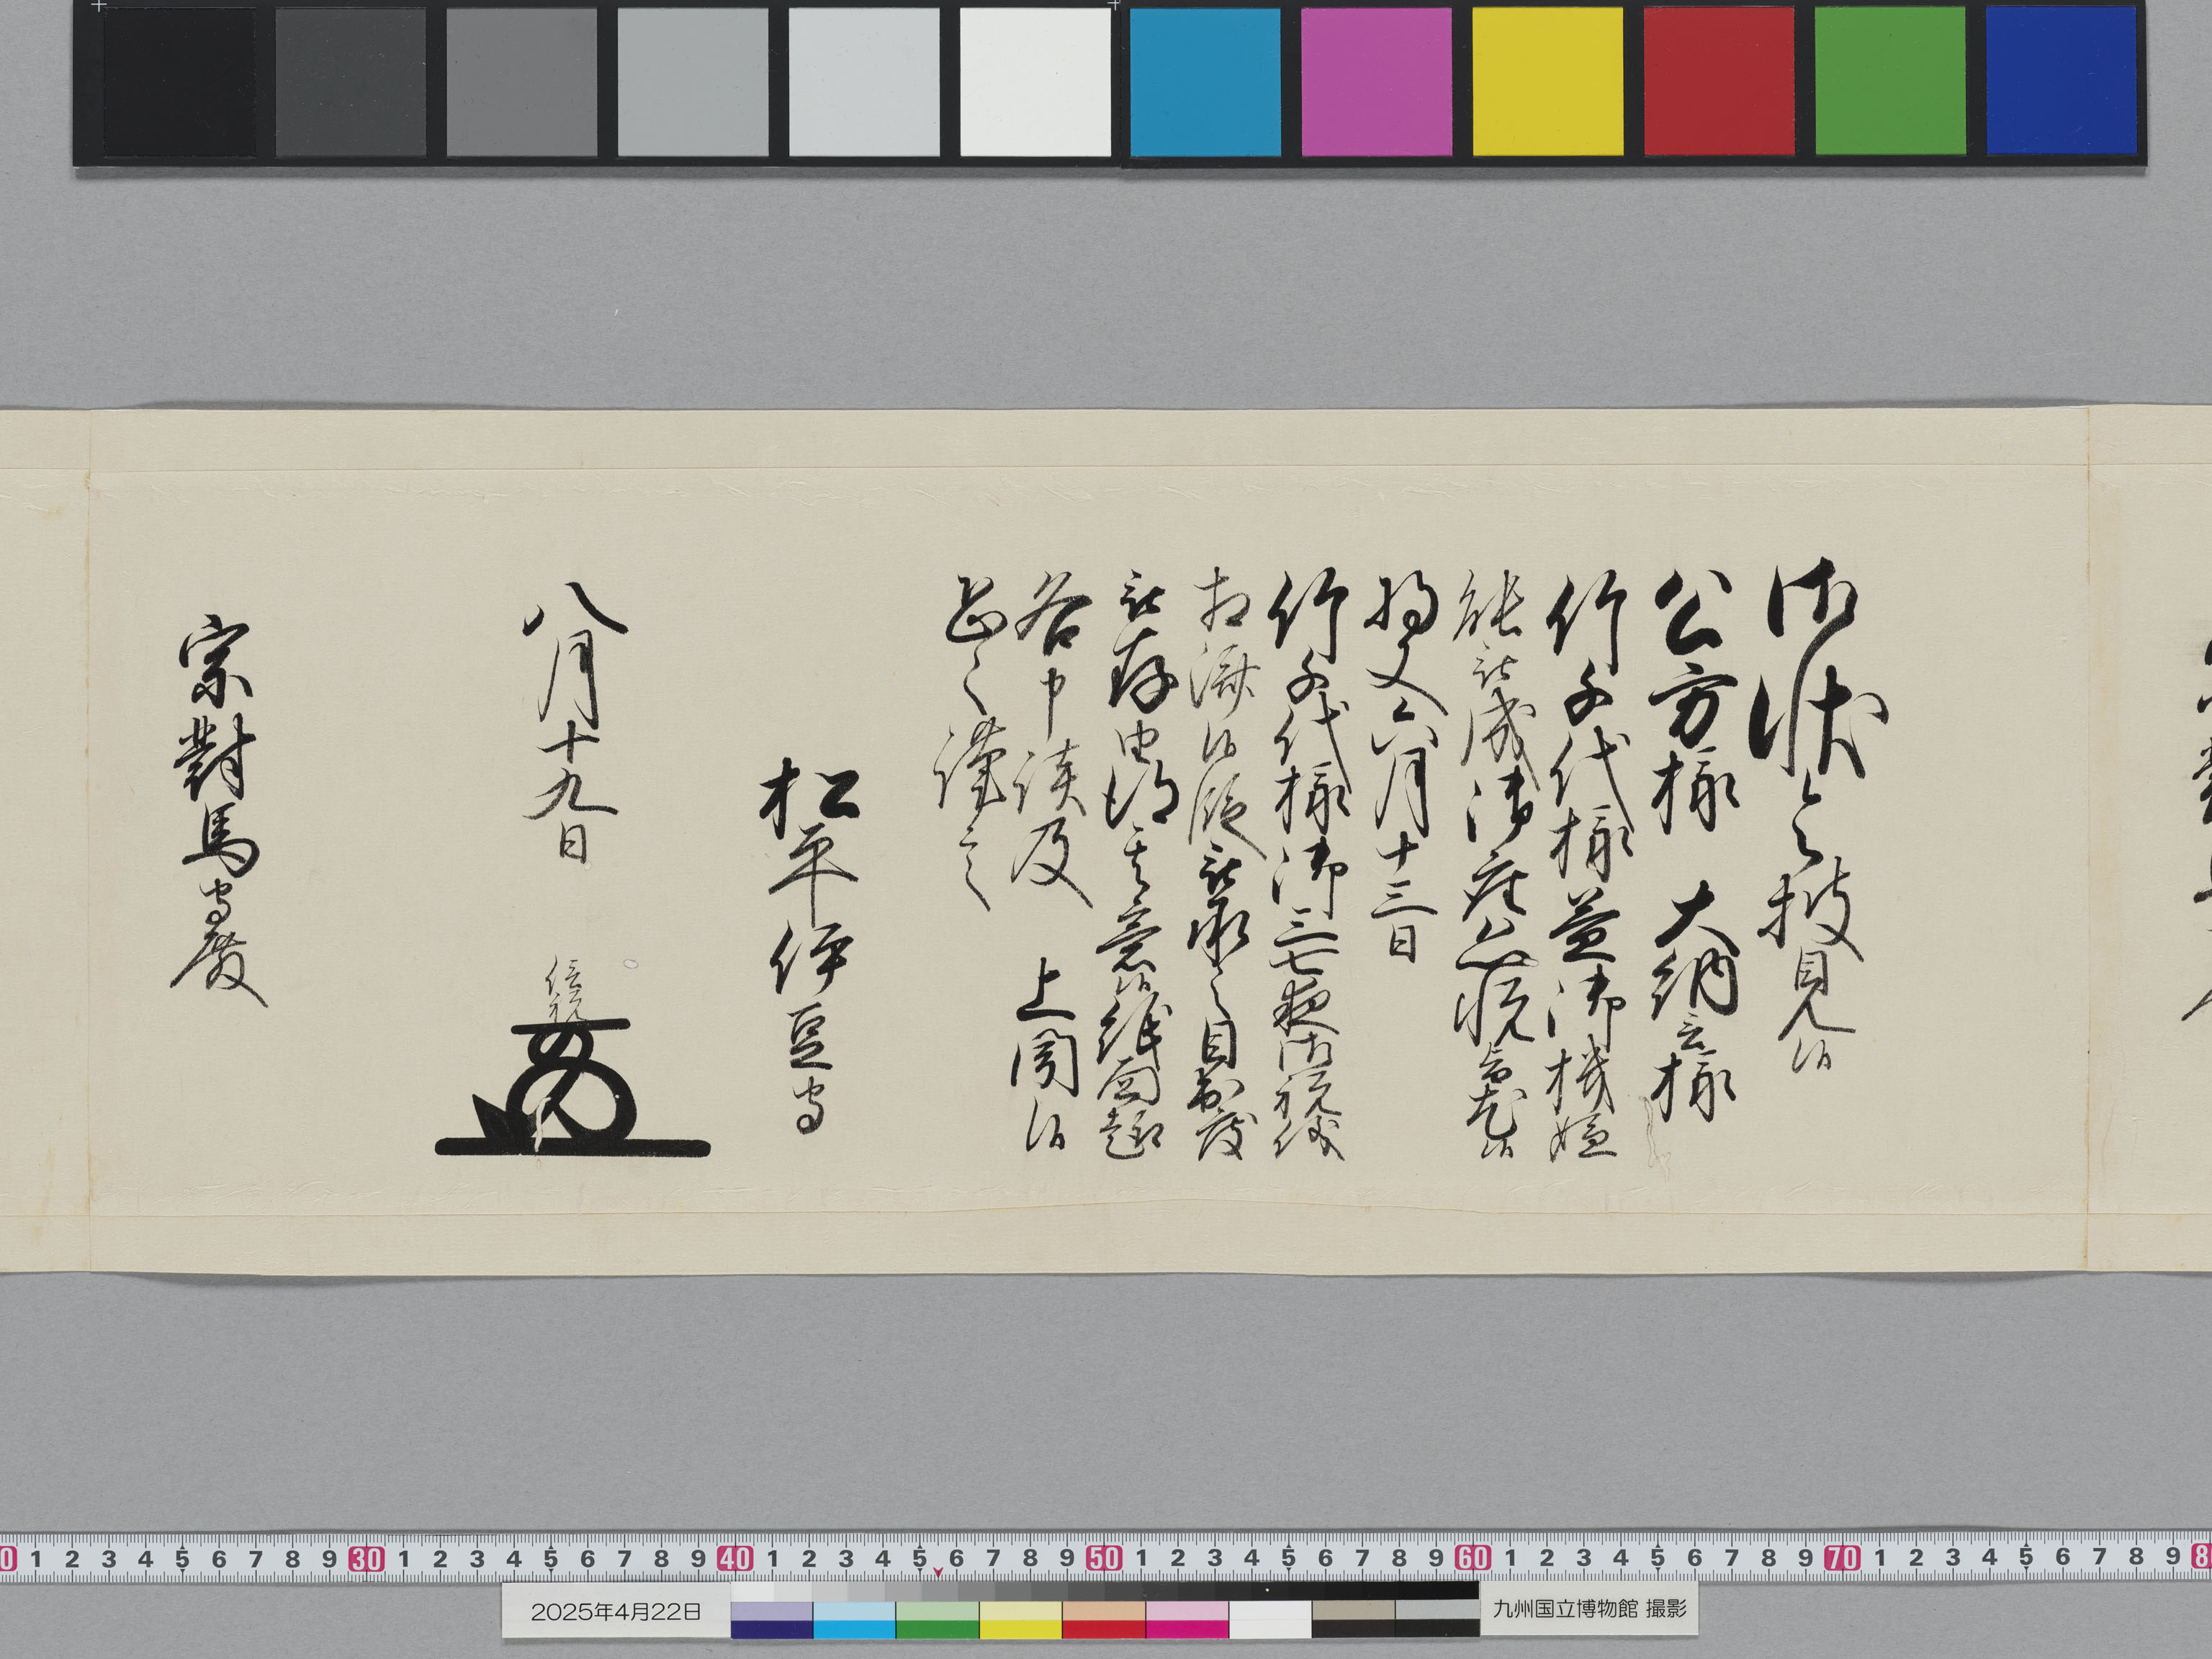 御状令披見候
公方様 大納言様
竹千代様益御機嫌
能被成御座恐悦旨尤候
将又六月十三日
竹千代様御三七夜御祝儀
相済候段被承之目出度
被存由得其意候紙面趣
各申談及 上聞候
恐々謹言
松平伊豆守
八月十九日 信祝
宗對馬守殿
0 1 2 3 4 5 6 7 8 9 30 1 2 3 4 5 6 7 8 9 40 1 2 3 4 5 6 7 8 9 50 1 2 3 4 5 6 7 8 9 60 1 2 3 4 5 6 7 8 9 70 1 2 3 4 5 6 7 8 9 8
2025年4月22日
九州国立博物館 撮影